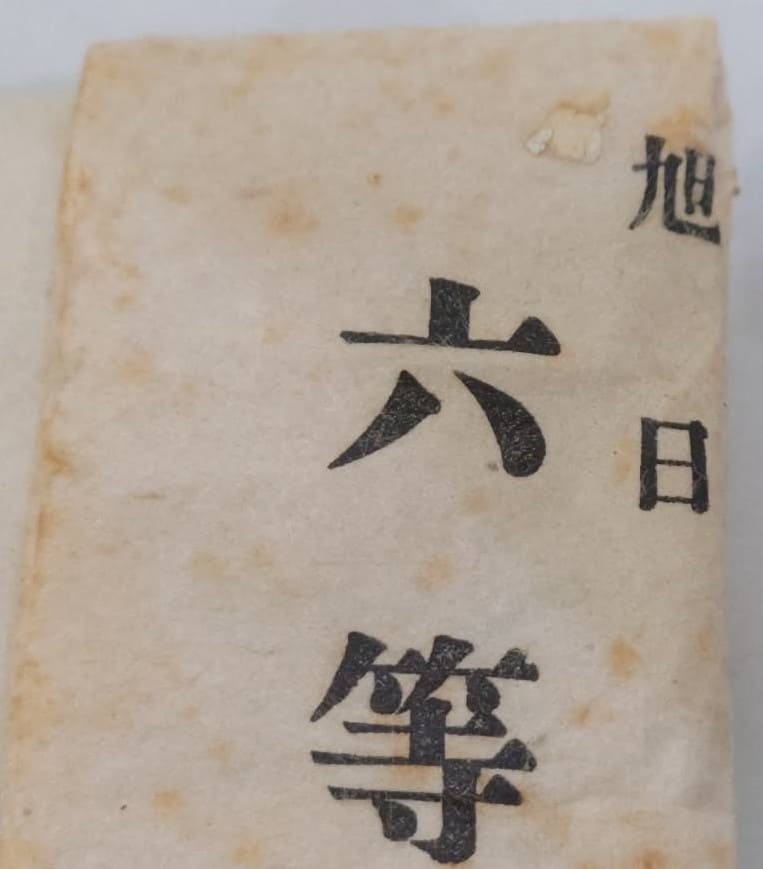 旭日
六等